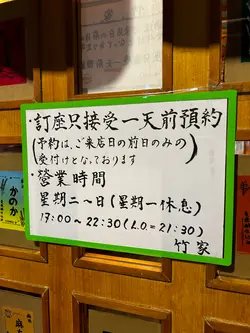 ・訂座只接受一天前預約
(予約は、ご来店日の前日のみの
受付けとなっております)
・營業時間
星期二～日(星期一休息)
17:00～22:30(L.O.=21:30)
竹家
かのか